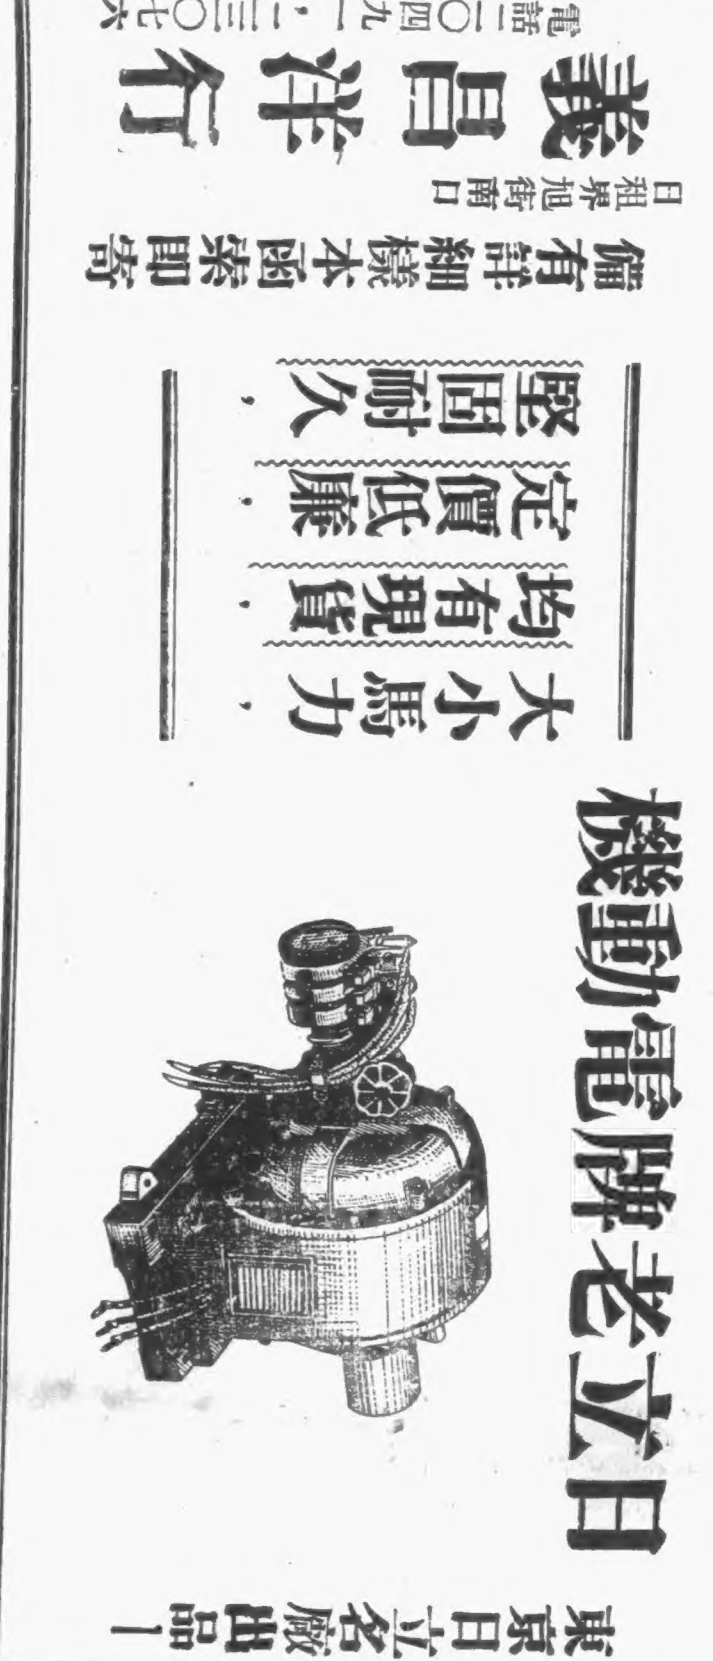 東京日立名廠出品—
日立老牌電動機
大小馬力，
均有現貨，
定價低廉，
堅固耐久，
備有詳細樣本函索即寄
日租界旭街南口
義昌洋行
電話二〇四九一，二三〇七六